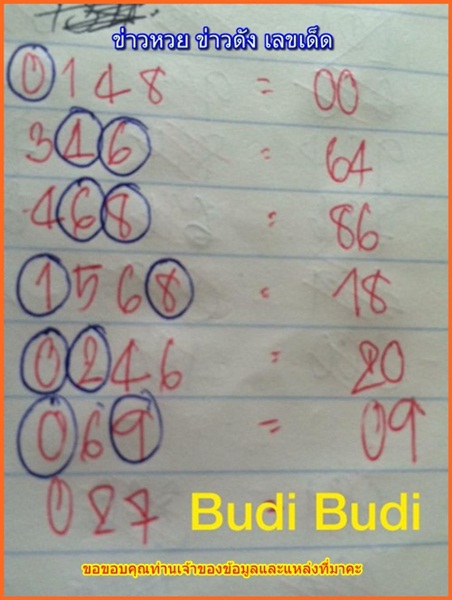 ข่าวหวย ข่าวดัง เลขเด็ด
0148 = 00
346 = 64
468 = 86
1568 = 18
0246 = 20
069 = 09
027 =
Budi Budi
ขอขอบคุณท่านเจ้าของข้อมูลและแหล่งที่มาคะ